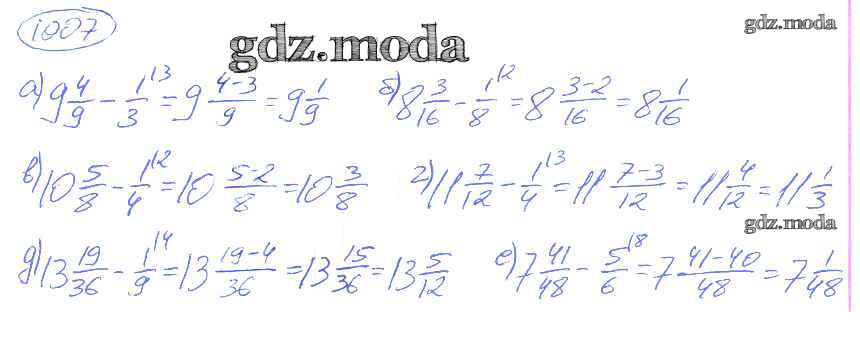 1007 gdz.moda
gdz.moda
а) 9 4/9 - 1/3 \3 = 9 (4-3)/9 = 9 1/9 б) 8 3/16 - 1/8 \2 = 8 (3-2)/16 = 8 1/16
в) 10 5/8 - 1/4 \2 = 10 (5-2)/8 = 10 3/8 г) 11 7/12 - 1/4 \3 = 11 (7-3)/12 = 11 4/12 = 11 1/3
gdz.moda
д) 13 19/36 - 1/9 \4 = 13 (19-4)/36 = 13 15/36 = 13 5/12 е) 7 41/48 - 5/6 \8 = 7 (41-40)/48 = 7 1/48